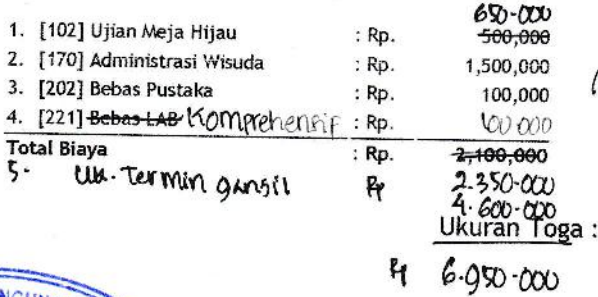 650-000
1. [102] Ujian Meja Hijau : Rp. 500,000
2. [170] Administrasi Wisuda : Rp. 1,500,000
3. [202] Bebas Pustaka : Rp. 100,000
4. [221] Bebas LAB Komprehensif : Rp. 100 000
Total Biaya : Rp. 2,100,000
5. Uk. Termin ganjil Rp 2.350-000
4.600-000
Ukuran Toga :
Rp 6.950-000